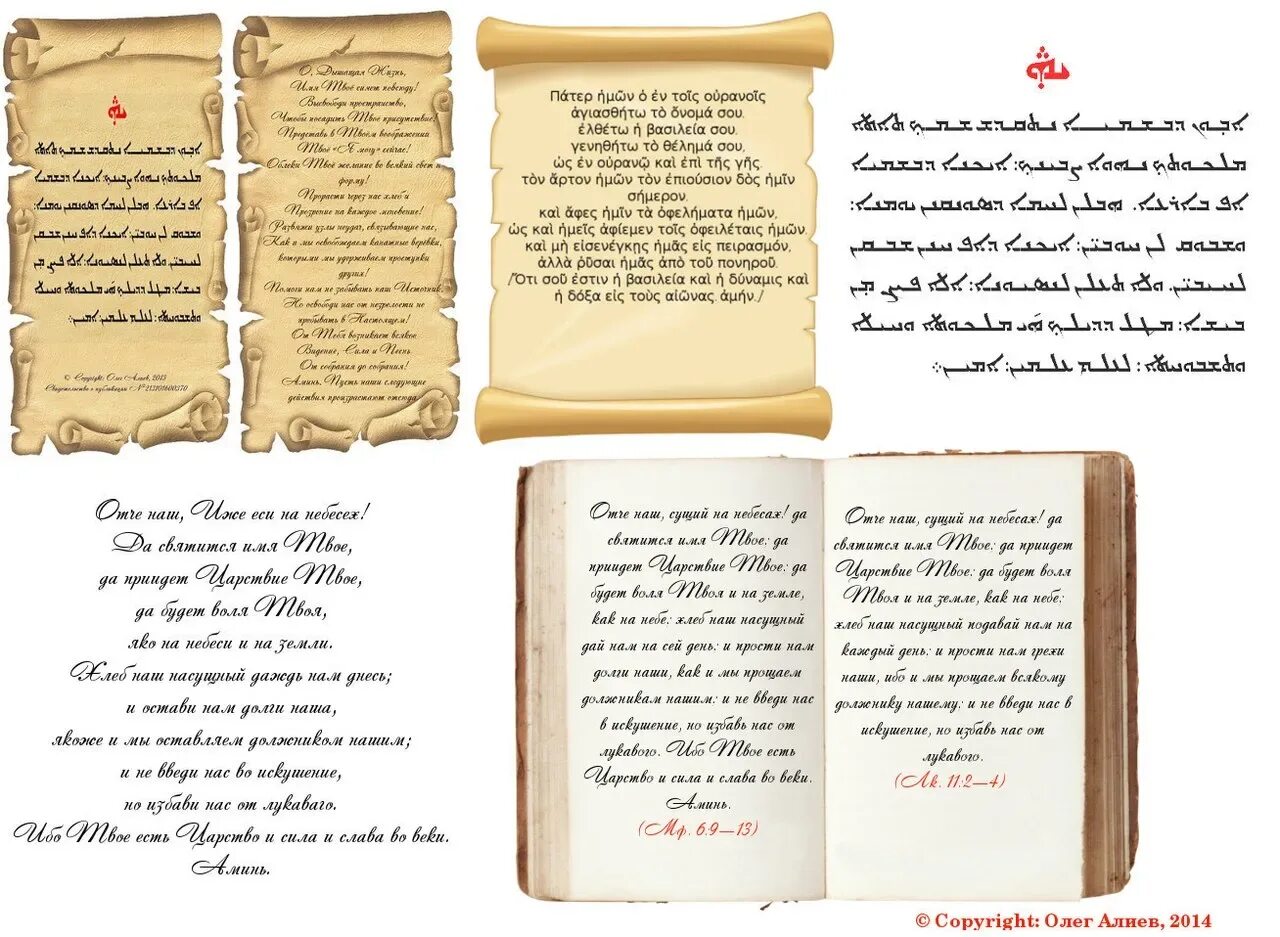 ܐܒܘܢ ܕܒܫܡܝܐ ܢܬܩܕܫ ܫܡܟ ܬܐܬܐ
ܡܠܟܘܬܟ ܢܗܘܐ ܨܒܝܢܟ: ܐܝܟܢܐ ܕܒܫܡܝܐ
ܐܦ ܒܐܪܥܐ. ܗܒ ܠܢ ܠܚܡܐ ܕܣܘܢܩܢܢ ܝܘܡܢܐ:
ܘܫܒܘܩ ܠܢ ܚܘܒܝ̈ܢ: ܐܝܟܢܐ ܕܐܦ ܚܢܢ ܫܒܩܢ
ܠܚܝܒܝ̈ܢ. ܘܠܐ ܬܥܠܢ ܠܢܣܝܘܢܐ: ܐܠܐ ܦܨܢ ܡܢ
ܒܝܫܐ: ܡܛܠ ܕܕܝܠܟ ܗܝ ܡܠܟܘܬܐ ܘܚܝܠܐ
ܘܬܫܒܘܚܬܐ: ܠܥܠܡ ܥܠܡܝܢ: ܐܡܝܢ܀
© Copyright: Олег Алиев, 2013
Свидетельство о публикации №213101600370
О, Дышащая Жизнь,
Имя Твоё сияет повсюду!
Высвободи пространство,
Чтобы посадить Твое присутствие!
Представь в Твоём воображении
Твоё «Я могу» сейчас!
Облеки Твоё желание во всякий свет и
форму!
Прорасти через нас хлеб и
Прозрение на каждое мгновение!
Развяжи узлы неудач, связывающие нас,
Как и мы освобождаем канатные верёвки,
которыми мы удерживаем проступки
других!
Помоги нам не забывать наш Источник,
Но освободи нас от незрелости не
пребывать в Настоящем!
От Тебя возникает всякое
Видение, Сила и Песнь
От собрания до собрания!
Аминь. Пусть наши следующие
действия произрастают отсюда.
Πάτερ ἡμῶν ὁ ἐν τοῖς οὐρανοῖς
ἁγιασθήτω τὸ ὄνομά σου.
ἐλθέτω ἡ βασιλεία σου.
γενηθήτω τὸ θέλημά σου,
ὡς ἐν οὐρανῷ καὶ ἐπὶ τῆς γῆς.
τὸν ἄρτον ἡμῶν τὸν ἐπιούσιον δὸς ἡμῖν
σήμερον.
καὶ ἄφες ἡμῖν τὰ ὀφελήματα ἡμῶν,
ὡς καὶ ἡμεῖς ἀφίεμεν τοῖς ὀφειλέταις ἡμῶν.
καὶ μὴ εἰσενέγκῃς ἡμᾶς εἰς πειρασμόν,
ἀλλὰ ῥῦσαι ἡμᾶς ἀπὸ τοῦ πονηροῦ.
/Ὅτι σοῦ ἐστιν ἡ βασιλεία καὶ ἡ δύναμις καὶ
ἡ δόξα εἰς τοὺς αἰῶνας. ἀμήν./
ܐܒܘܢ ܕܒܫܡܝܐ ܢܬܩܕܫ ܫܡܟ ܬܐܬܐ
ܡܠܟܘܬܟ ܢܗܘܐ ܨܒܝܢܟ: ܐܝܟܢܐ ܕܒܫܡܝܐ
ܐܦ ܒܐܪܥܐ. ܗܒ ܠܢ ܠܚܡܐ ܕܣܘܢܩܢܢ ܝܘܡܢܐ:
ܘܫܒܘܩ ܠܢ ܚܘܒܝ̈ܢ: ܐܝܟܢܐ ܕܐܦ ܚܢܢ ܫܒܩܢ
ܠܚܝܒܝ̈ܢ. ܘܠܐ ܬܥܠܢ ܠܢܣܝܘܢܐ: ܐܠܐ ܦܨܢ ܡܢ
ܒܝܫܐ: ܡܛܠ ܕܕܝܠܟ ܗܝ ܡܠܟܘܬܐ ܘܚܝܠܐ
ܘܬܫܒܘܚܬܐ: ܠܥܠܡ ܥܠܡܝܢ: ܐܡܝܢ܀
Отче наш, Иже еси на небесех!
Да святится имя Твое,
да приидет Царствие Твое,
да будет воля Твоя,
яко на небеси и на земли.
Хлеб наш насущный даждь нам днесь;
и остави нам долги наша,
якоже и мы оставляем должником нашим;
и не введи нас во искушение,
но избави нас от лукаваго.
Ибо Твое есть Царство и сила и слава во веки.
Аминь.
Отче наш, сущий на небесах! да
святится имя Твое; да
приидет Царствие Твое; да
будет воля Твоя и на земле,
как на небе; хлеб наш насущный
дай нам на сей день; и прости нам
долги наши, как и мы прощаем
должникам нашим; и не введи нас
в искушение, но избавь нас от
лукавого. Ибо Твое есть
Царство и сила и слава во веки.
Аминь.
(Мф. 6:9—13)
Отче наш, сущий на небесах! да
святится имя Твое; да приидет
Царствие Твое; да будет воля
Твоя и на земле, как на небе;
хлеб наш насущный подавай нам на
каждый день; и прости нам грехи
наши, ибо и мы прощаем всякому
должнику нашему; и не введи нас в
искушение, но избавь нас от
лукавого.
(Лк. 11:2—4)
© Copyright: Олег Алиев, 2014